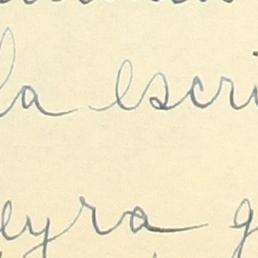 la escri
eyra g